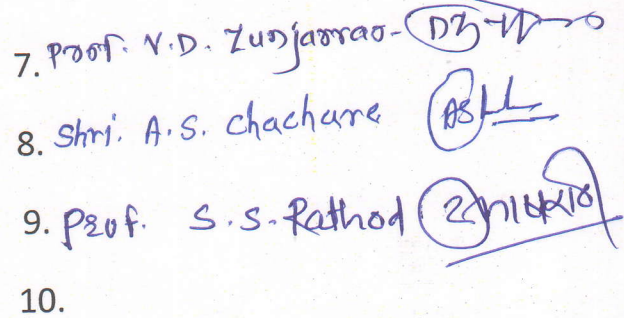 7. Prof. V.D. Zunjarrao-
8. Shri. A.S. Chachare
9. Prof. S.S. Rathod
10.